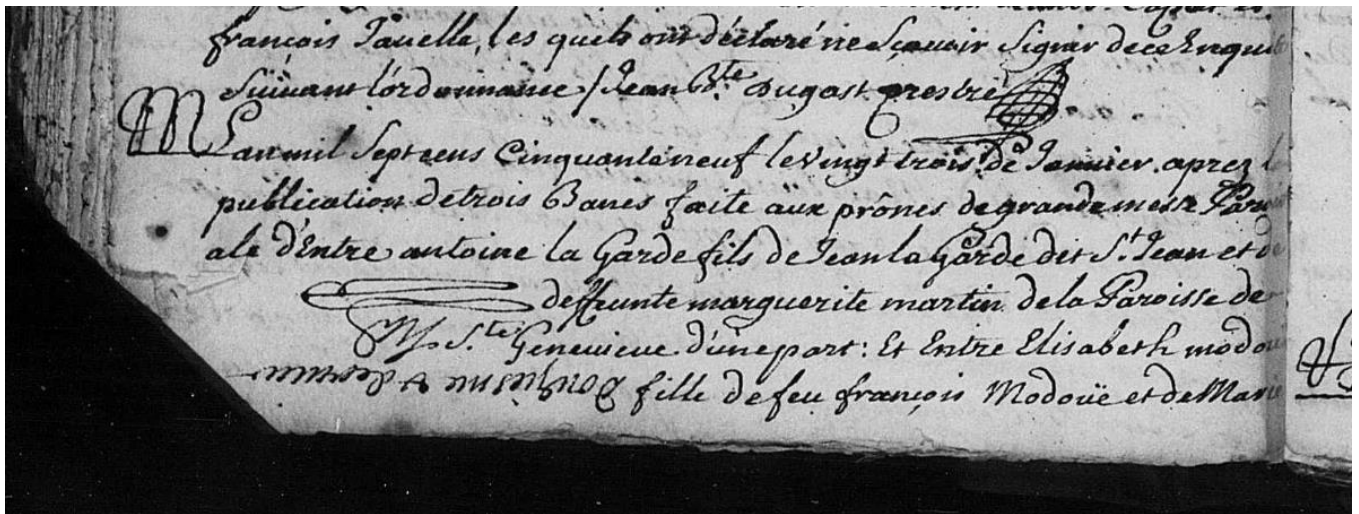 françois Javelle, les quels ont déclaré ne Sçavoir Signer de ce Enquis
Suivant l'ordonnance / Jean B.te Dugast prestre
M L'an mil Sept cens Cinquante neuf le vingt trois de Janvier. aprez
publication de trois Banes faite aux prônes de grande messe
ale d'Entre antoine la Garde fils de Jean la Garde dit S.t Jean et
deffunte marguerite martin de la Paroisse de
M. S.te Genevieve d'une part: Et Entre Elisabeth modou
fille de feu françois Modoüe et de Marie